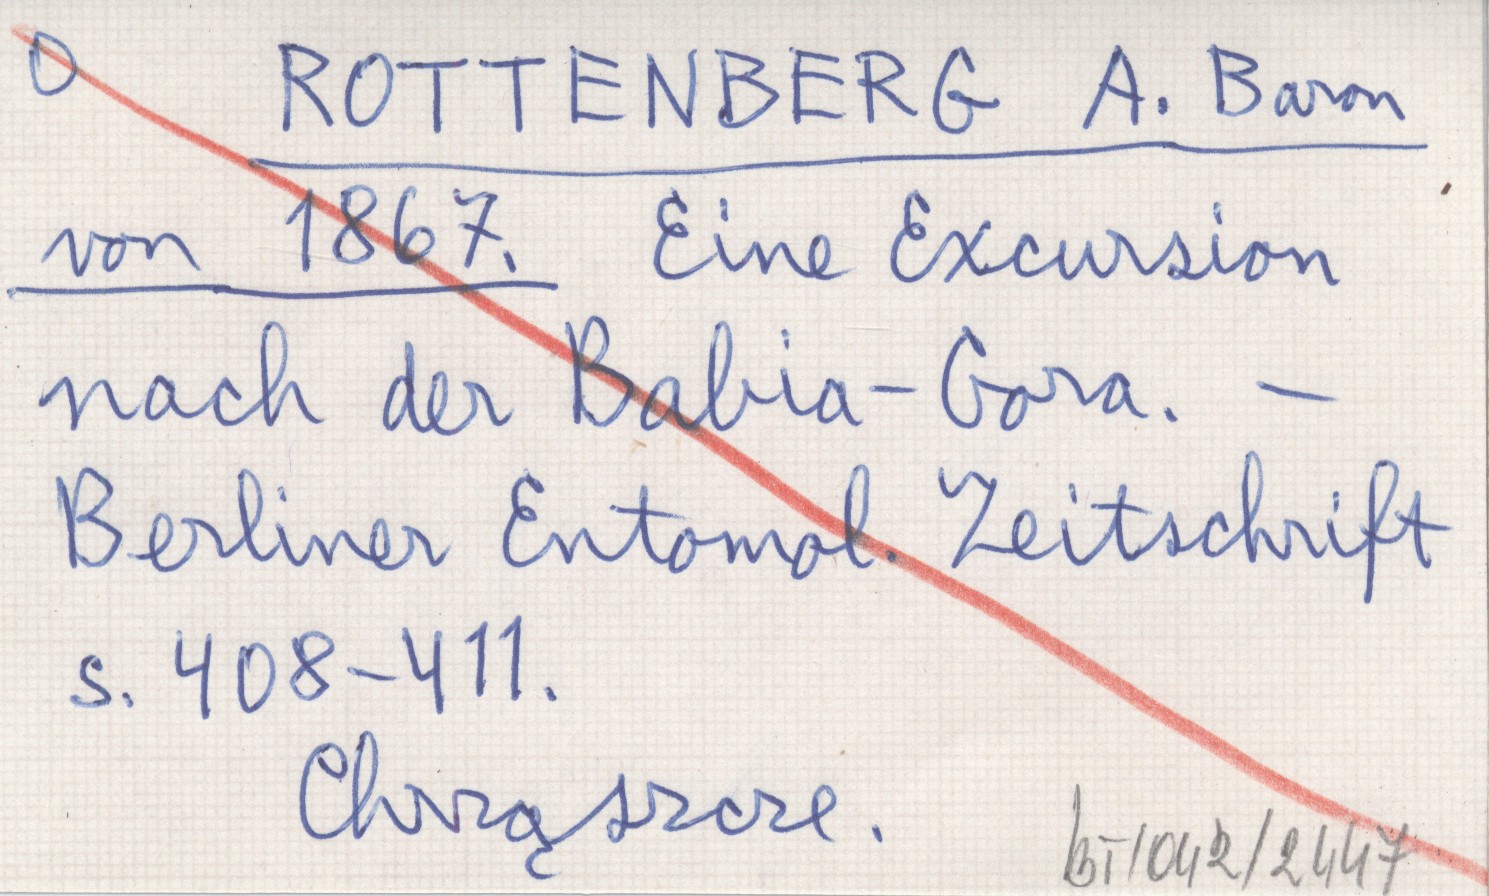 O ROTTENBERG A. Baron
von 1867. Eine Excursion
nach der Babia-Gora. —
Berliner Entomol. Zeitschrift
s. 408-411.
Chrząszcze.
bT/042/2447